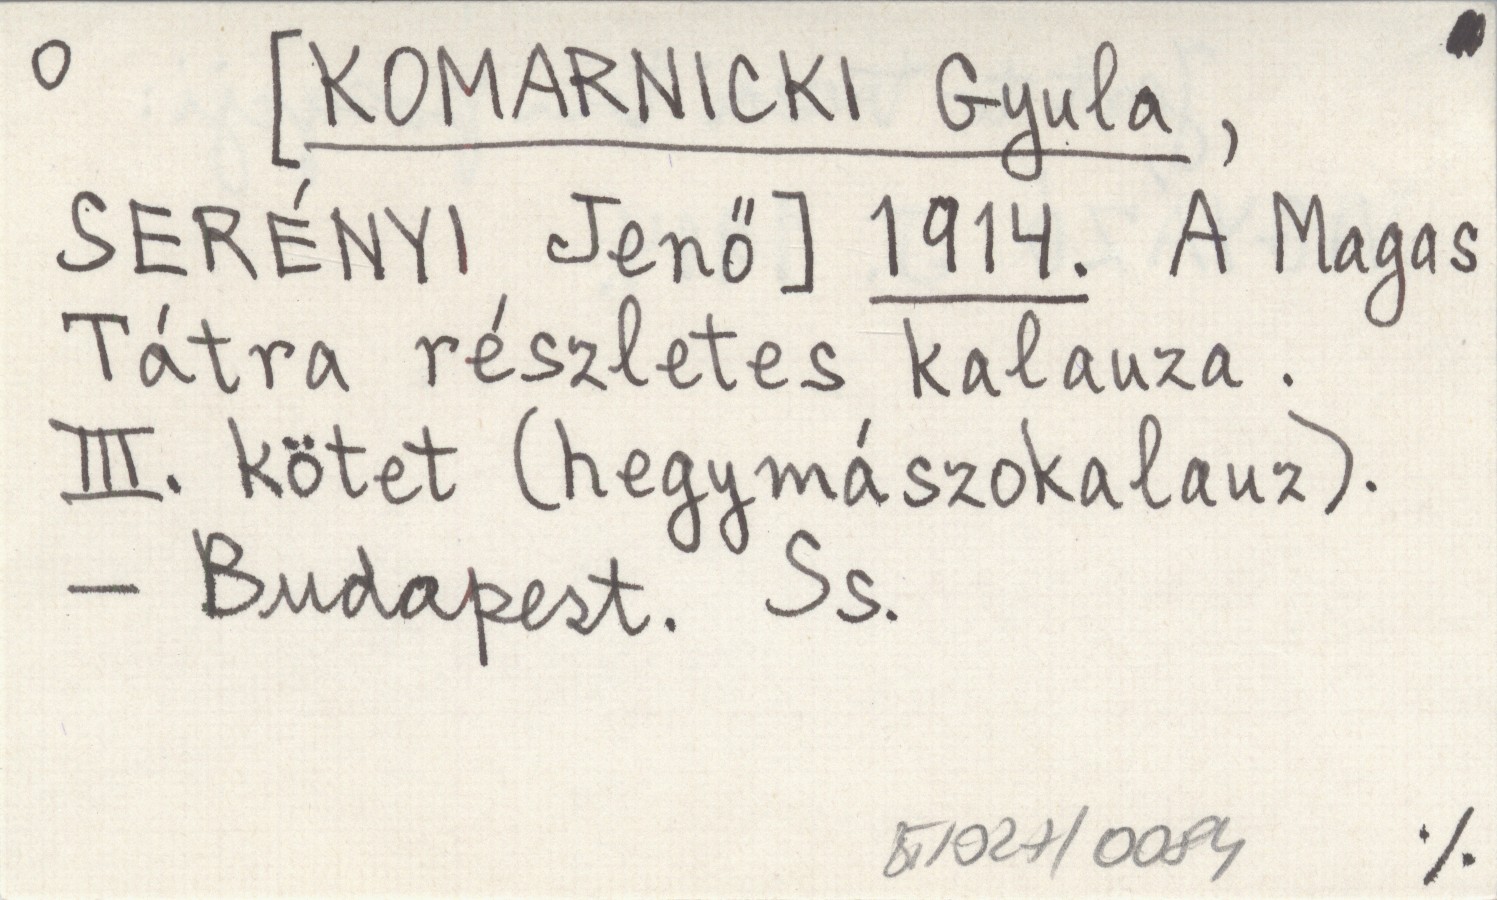 O [KOMARNICKI Gyula,
SERÉNYI Jenő] 1914. A Magas
Tátra részletes kalauza.
III. kötet (hegymászokalauz).
— Budapest. Ss.
./.